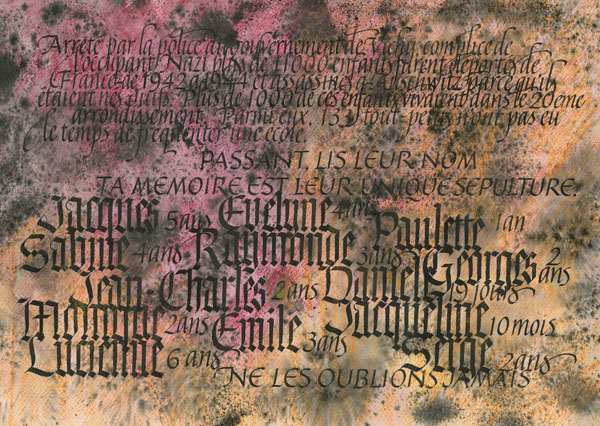 Arrêté par la police du gouvernement de Vichy, complice de
l'occupant Nazi plus de 11000 enfants furent déportés de
France de 1942 à 1944 et assassinés à Auschwitz parce qu'ils
étaient nés juifs. Plus de 1000 de ces enfants vivaient dans le 20ème
arrondissement. Parmi eux, 133 tout-petits n'ont pas eu
le temps de fréquenter une école.
PASSANT, LIS LEUR NOM
TA MEMOIRE EST LEUR UNIQUE SEPULTURE.
Jacques 5 ans Evelyne 4 ans Paulette 1 an
Sabine 4 ans Raymonde 3 ans Georges 2 ans
Jean-Charles 2 ans Daniel 19 jours
2 ans Emile 3 ans Jacqueline 10 mois
Lucienne 6 ans Serge 2 ans
NE LES OUBLIONS JAMAIS